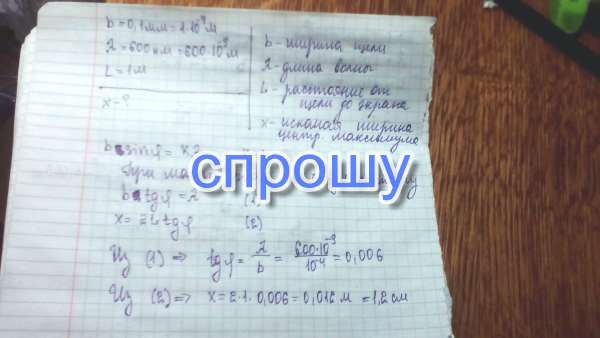 b = 0,1мм = 1·10⁻⁴м
λ = 600 нм = 600·10⁻⁹м
L = 1м
x - ?
b - ширина щели
λ - длина волны
L - расстояние от
щели до экрана
x - искомая ширина
центр. максимума
b sinφ = kλ
При
спрошу
b tgφ = λ
x = 2L tgφ (2)
Из (1) ⇒ tgφ = λ/b = 600·10⁻⁹/10⁻⁴ = 0,006
Из (2) ⇒ x = 2·1·0,006 = 0,012 м = 1,2 см